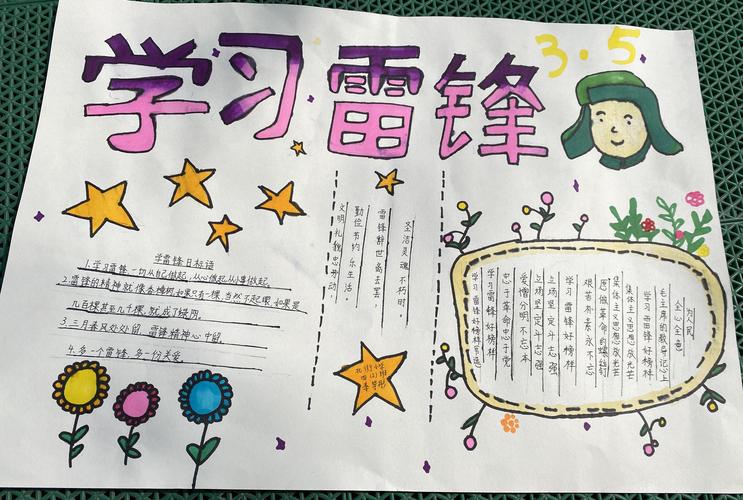 学习雷锋
3·5
学雷锋日标语
1.学习雷锋,一切从自己做起,从心做起从小事做起。
2.雷锋的精神就像香樟树,如果只有一棵,当然不起眼,如果是
几百棵甚至几千棵,就成了绿荫。
3.三月春风处处留,雷锋精神心中留。
4.多一个雷锋,多一份关爱。
圣洁灵魂不朽时。
雷锋辞世尚去罢,
勤俭节约乐生活。
文明礼貌
劳动,
为人民
全心全意
毛主席的教导记心上
学习雷锋好榜样
集体主义思想放光芒
集体主义思想放光芒
愿做革命的螺丝钉
艰苦朴素永不忘
学习雷锋好榜样
立场坚定斗志强
立场坚定斗志强
爱憎分明不忘本
忠于革命忠于党
学习雷锋好榜样
学习雷锋好榜样